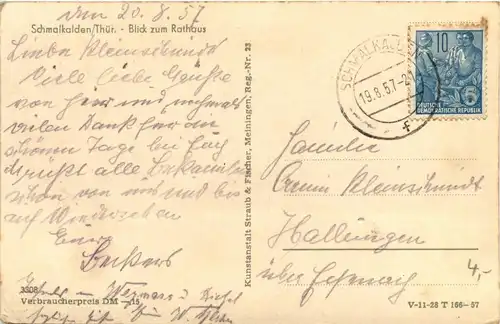 den 20.8.57
Schmalkalden/Thür. - Blick zum Rathaus
Liebe Kleinschmidts
Viele liebe Grüße
von hier und nochmals
vielen Dank für die
schönen Tage bei Euch
Grüßt alle Bekannten
schon von uns und bis
auf Wiedersehen
Eure
Beckers
3308
Verbraucherpreis DM —,15
Kunstanstalt Straub & Fischer, Meiningen, Reg.-Nr. 23
SCHMALKALDEN
19.8.57-21
f
10
DEUTSCHE
DEMOKRATISCHE REPUBLIK
Familie
Armin Kleinschmidt
Hallungen
über Eisenach
4,-
V-11-28 T 166-57